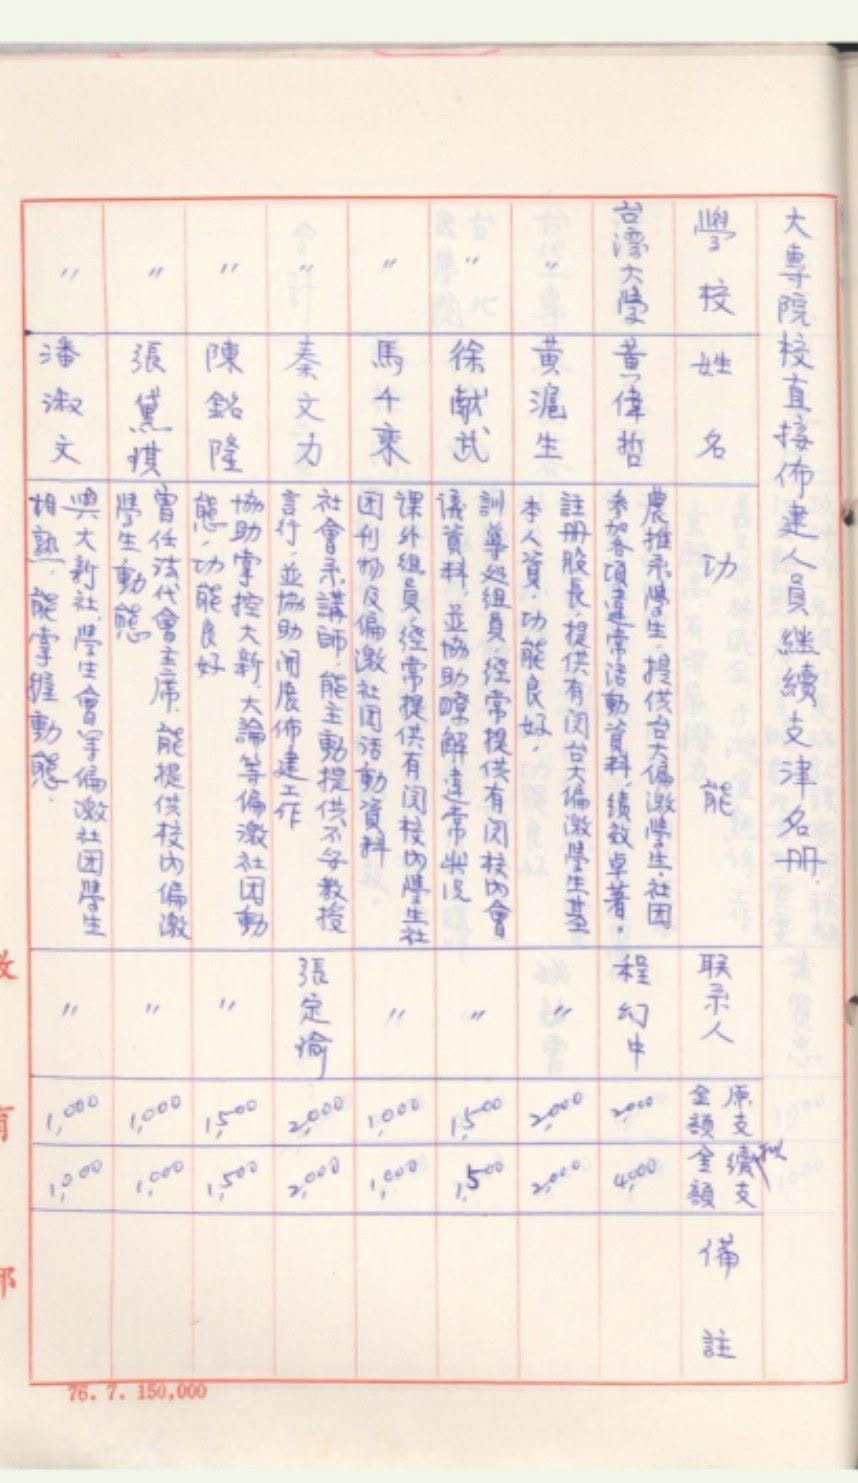 大專院校直接佈建人員繼續支津名冊.
學校
姓名
功能
联系人
原支金額
擬續支金額
備註
台灣大學
黃偉哲
農推系學生,提供台大偏激學生社团
参加各項違常活動資料,績效卓著。
程幻中
2,000
4,000
〃
黃滬生
註册股長,提供有関台大偏激學生基
本人資,功能良好。
〃
2,000
2,000
〃
徐献武
訓導処組員,經常提供有関校內會
議資料,並協助瞭解違常狀況
〃
1,500
1,500
〃
馬千乘
課外組員,經常提供有関校內學生社
团刊物及偏激社团活動資料
〃
1,000
1,000
〃
秦文力
社會系講師,能主動提供不妥教授
言行,並協助開展佈建工作
張定瑜
2,000
2,000
〃
陳銘隆
協助掌控大新、大論等偏激社团動
態,功能良好
〃
1,500
1,500
〃
張黛琪
曾任法代會主席,能提供校內偏激
學生動態
〃
1,000
1,000
〃
潘淑文
與大新社、學生會等偏激社团學生
相熟,能掌握動態.
〃
1,000
1,000
育
部
76. 7. 150,000